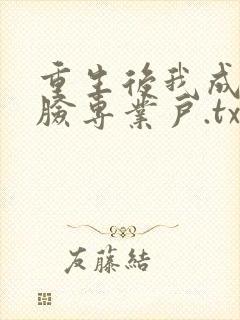 重生後我成
臉專業戶.tx
友藤結